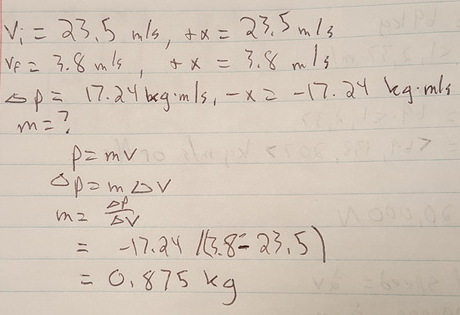 Vi = 23.5 m/s, +x = 23.5 m/s
Vf = 3.8 m/s, +x = 3.8 m/s
Δp = 17.24 kg·m/s, -x = -17.24 kg·m/s
m = ?
p = mv
Δp = m Δv
m = Δp/Δv
= -17.24 / (3.8 - 23.5)
= 0.875 kg